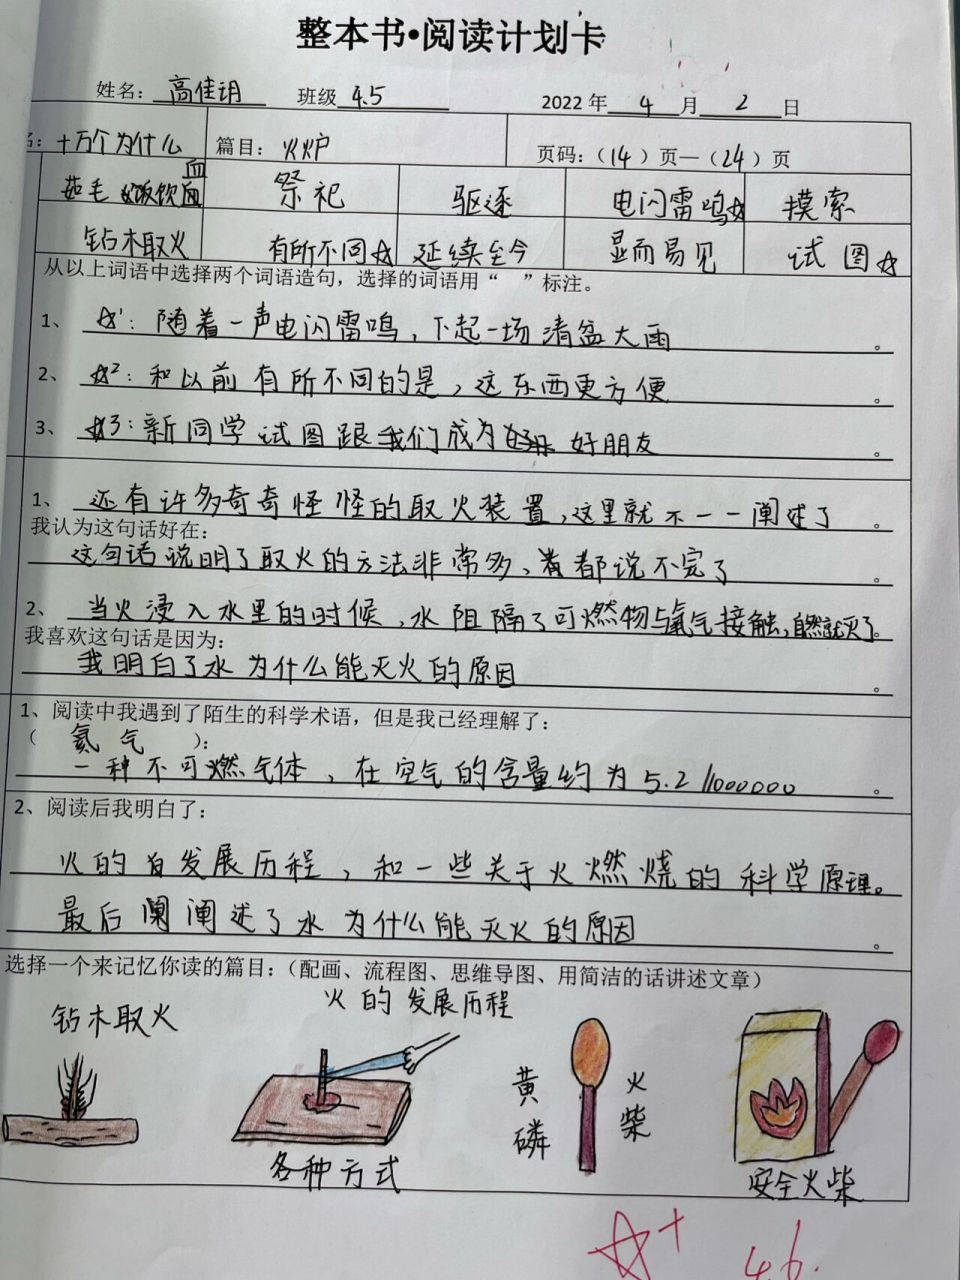 整本书•阅读计划卡
姓名：高佳玥 班级4.5 2022年4月2日
名：十万个为什么 篇目：火炉 页码：（14）页—（24）页
茹毛饮血 祭祀 驱逐 电闪雷鸣☆ 摸索
钻木取火 有所不同☆ 延续至今 显而易见 试图☆
从以上词语中选择两个词语造句，选择的词语用“ ”标注。
1、☆1：随着一声电闪雷鸣，下起一场清盆大雨。
2、☆2：和以前有所不同的是，这东西更方便。
3、☆3：新同学试图跟我们成为好朋友。
1、还有许多奇奇怪怪的取火装置，这里就不一一阐述了。
我认为这句话好在：
这句话说明了取火的方法非常多、都说不完了。
2、当火浸入水里的时候，水阻隔了可燃物与氧气接触，自然就灭了。
我喜欢这句话是因为：
我明白了水为什么能灭火的原因。
1、阅读中我遇到了陌生的科学术语，但是我已经理解了：
（氦气）：
一种不可燃气体，在空气的含量约为5.2/1000000。
2、阅读后我明白了：
火的发展历程，和一些关于火燃烧的科学原理。
最后阐述了水为什么能灭火的原因。
选择一个来记忆你读的篇目：（配画、流程图、思维导图、用简洁的话讲述文章）
火的发展历程
钻木取火
各种方式
黄磷
火柴
安全火柴
☆+ 4.6.